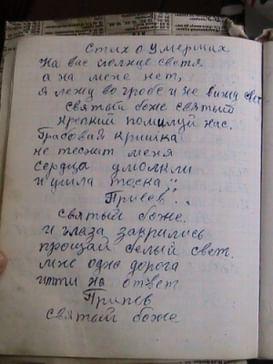 Стих о умерших
На вас солнце светя
а на мене нет,
я лежу во гробе и не вижу свет
святый боже святый
крепкий помилуй нас.
Гробовая кришка
не теснит меня
сердца умолкли
и ушла тоска
Припев
святый боже.
и глаза закрились
прощай белый свет.
мне одна дорога
итти на ответ
Припев
святый боже